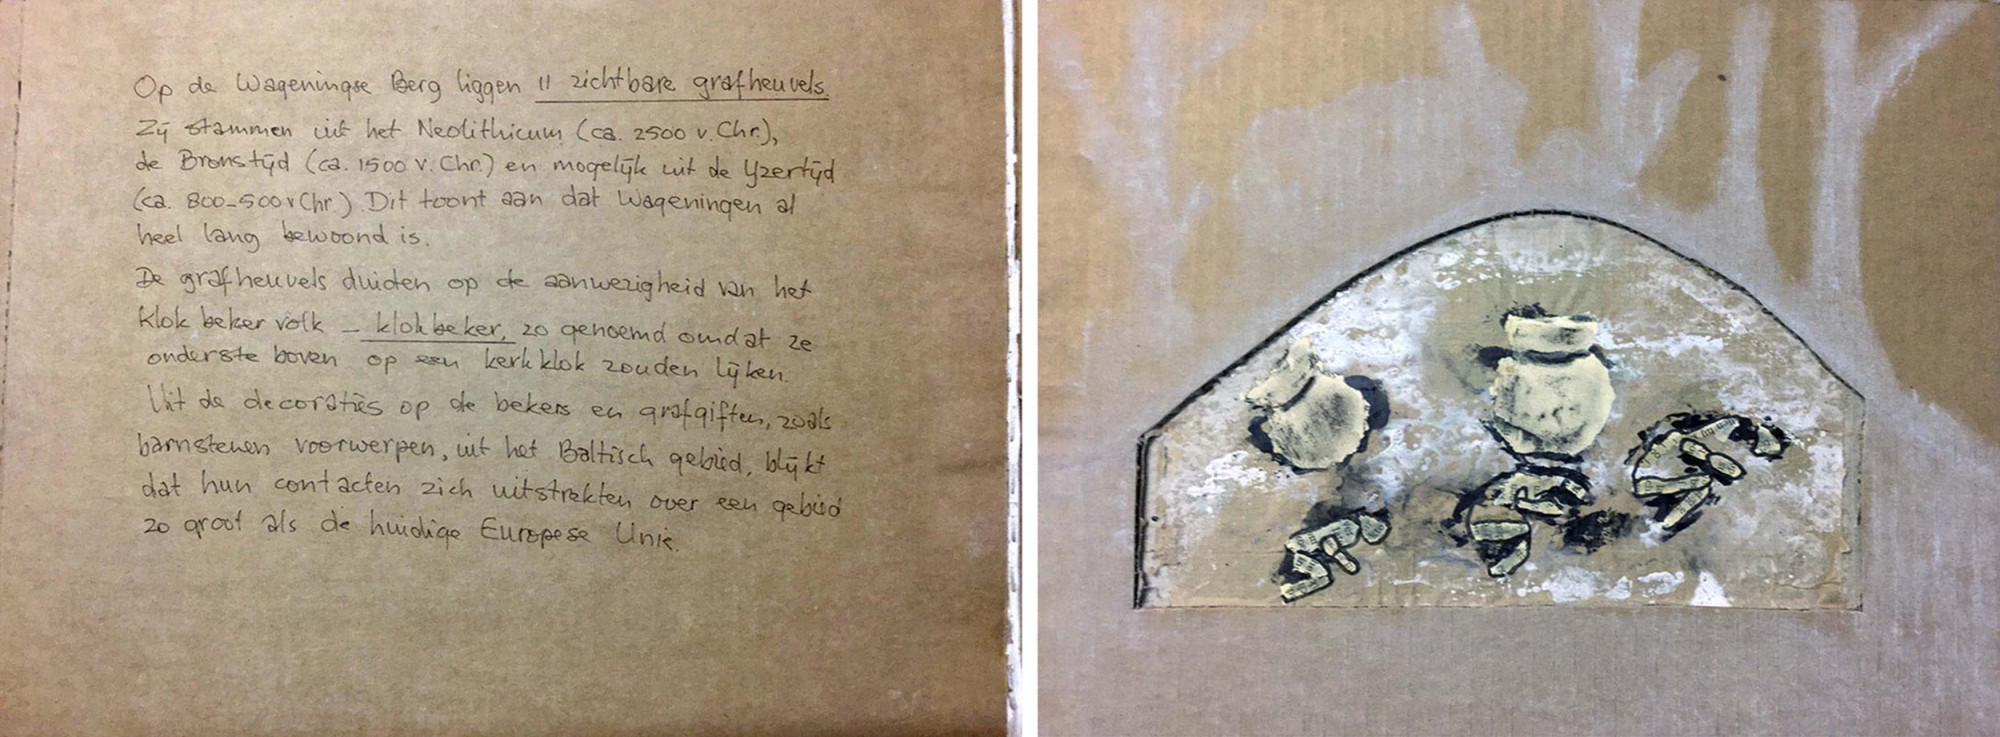 Op de Wageningse Berg liggen 11 zichtbare grafheuvels.
Zij stammen uit het Neolithicum (ca. 2500 v. Chr.),
de Bronstijd (ca. 1500 v. Chr.) en mogelijk uit de Yzertijd
(ca. 800-500 v Chr.) Dit toont aan dat Wageningen al
heel lang bewoond is.
De grafheuvels duiden op de aanwezigheid van het
Klok beker volk – klokbeker, zo genoemd omdat ze
onderste boven op een kerkklok zouden lijken.
Uit de decoraties op de bekers en grafgiften, zoals
barnstenen voorwerpen, uit het Baltisch gebied, blijkt
dat hun contacten zich uitstrekten over een gebied
zo groot als de huidige Europese Unie.